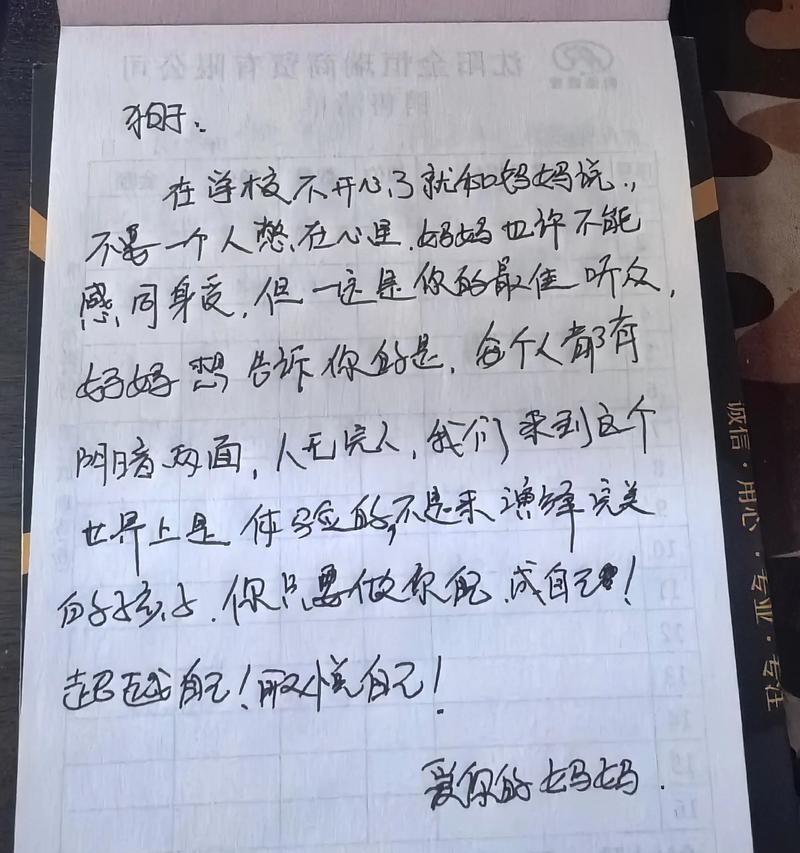 沈阳金恒瑞商贸有限公司
狗子:
在学校不开心了就和妈妈说.,
不要一个人憋在心里.妈妈也许不能
感同身受,但一定是你的最佳听众,
妈妈想告诉你的是,每个人都有
阴暗两面,人无完人,我们来到这个
世界上是体验的,不是来演绎完美
的孩子.你只要做你 成自己!
超越自己!取悦自己!
爱你的妈妈.
诚信·用心·专业·专注